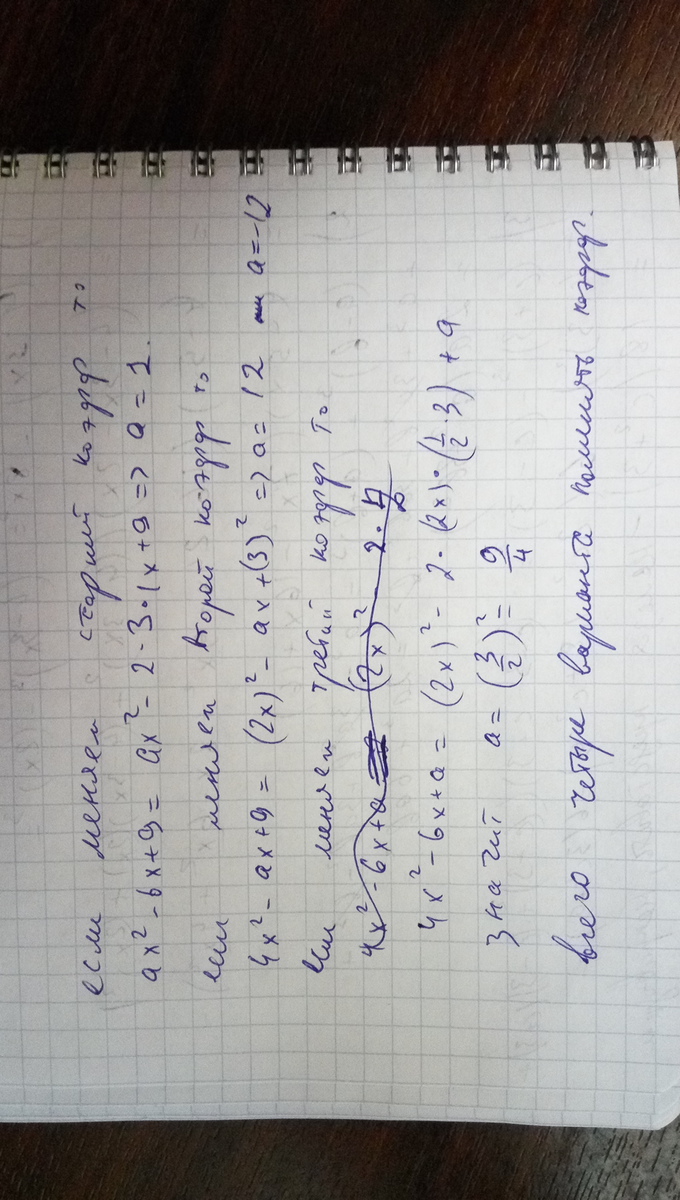 если меняем старший коэфф то
ax² - 6x + 9 = ax² - 2 · 3 · 1x + 9 => a = 1.
если меняем второй коэфф то
4x² - ax + 9 = (2x)² - ax + (3)² => a = 12 или a = -12
если меняем третий коэфф то
4x² - 6x + a (2x)² - 2 ·
4x² - 6x + a = (2x)² - 2 · (2x) · (1/2 · 3) + a
значит a = (3/2)² = 9/4
всего четыре варианта поменять коэфф.